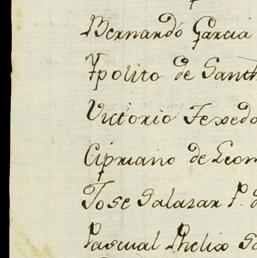 Bernardo Garcia
Ypolito de Sant
Victorio Texedo
Cipriano de Leon
Jose Salazar P.
Pascual Phelix